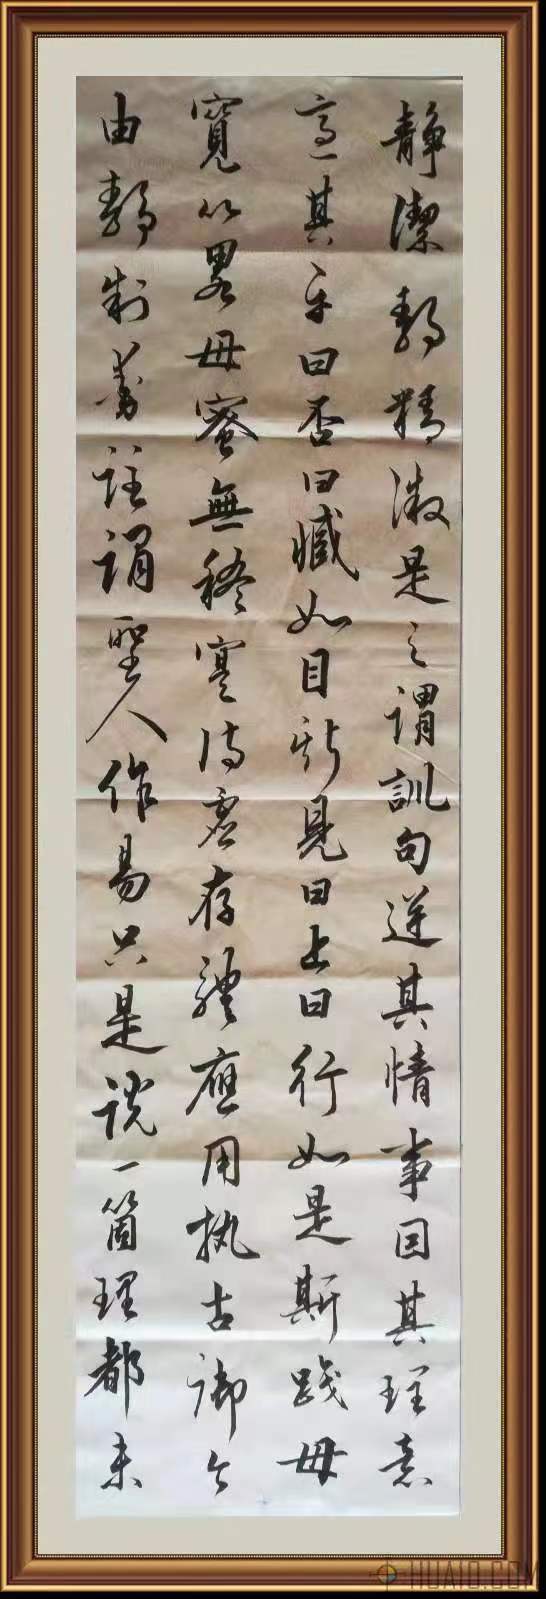 静潔静精微是之謂訓句逆其情事因其理意
適其平曰否曰臧如目斯見曰止曰行如是斯踐毋
寬以畧毋蜜無稽寔待虛存體應用執古御今
由静制動註謂聖人作易只是說一箇理都未
HUAIO.COM